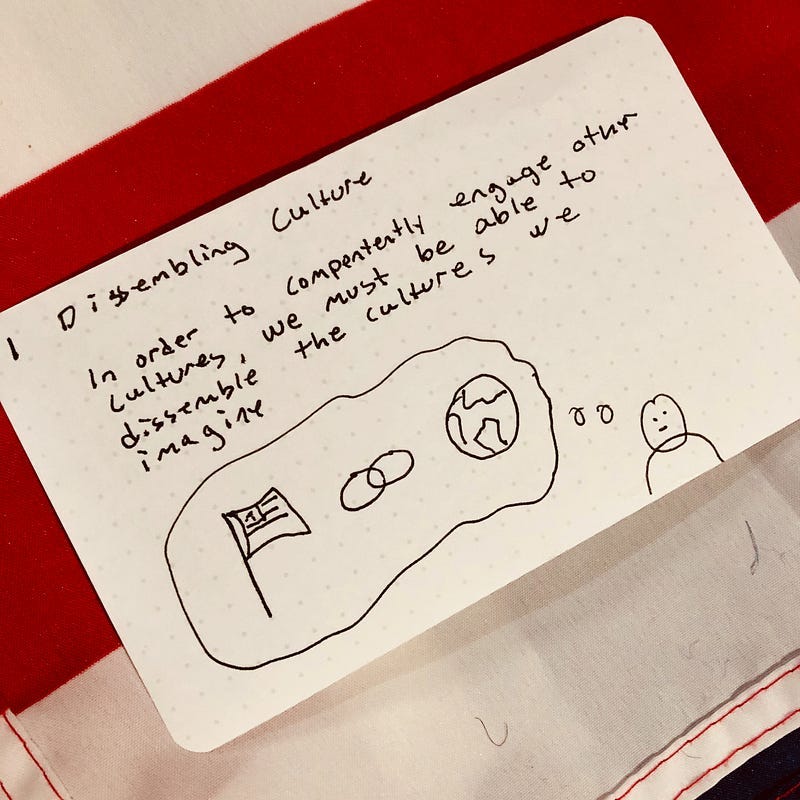 1 Dissembling Culture
In order to compentently engage other
cultures, we must be able to
dissemble the cultures we
imagine